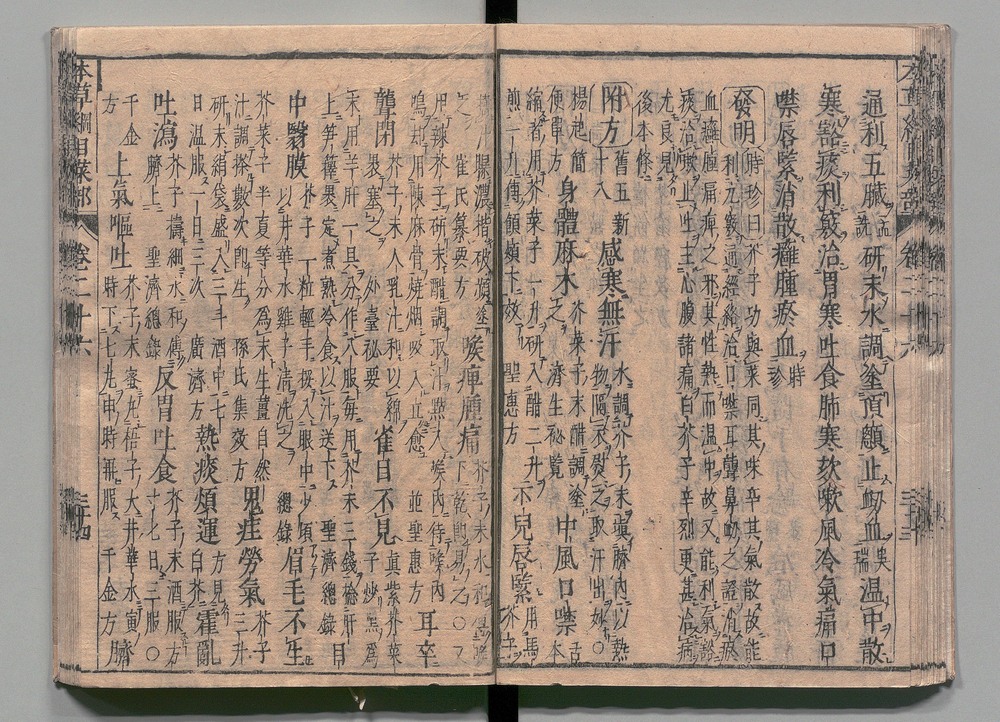 通利五臟孟詵研末水調塗頂顖止衂血吳瑞溫中散
寒豁痰利竅治胃寒吐食肺寒欬嗽風冷氣痛口
噤唇緊消散癰腫瘀血時珍
發明時珍曰芥子功與菜同其味辛其氣散故能
利九竅通經絡治口噤耳聾鼻衂之證消瘀
血癰腫痛痺之邪其性熱而溫中故又能利氣豁
痰治嗽止吐主心腹諸痛白芥子辛烈更甚治病
尤良見
後本條
附方舊五新十八感寒無汗水調芥子末填臍內以熱
物隔衣熨之取汗出妙○
楊起簡便單方身體麻木芥菜子末醋調塗
之濟生秘覽中風口噤舌本
縮者用芥菜子一升研入醋二升
煎一升傅頷頰下效聖惠方小兒唇緊用馬
芥子
濃揩破頻塗
崔氏纂要方喉痺腫痛芥子末水和
傅喉下乾即易之○又
用辣芥子研末醋調取汁點入喉內待喉內
鳴却用陳麻骨燒烟吸入立愈並聖惠方耳卒
聾閉芥子末人乳汁和以綿
裹塞之外臺秘要雀目不見真紫芥菜
子炒黑爲
末用羊肝一具分作八服每用芥末三錢捻肝
上笋籜裹定煮熟冷食以汁送下聖濟總錄目
中翳膜芥子一粒輕手挼入眼中少頃
以井華水雞子清洗之總錄眉毛不生
芥菜子半夏等分爲末生薑自然
汁調搽數次即生孫氏集效方鬼疰勞氣芥子三升
研末絹袋盛入三斗酒中七
日溫服一日三次廣濟方熱痰煩運方見白芥霍亂
吐瀉芥子擣細水和傅
臍上聖濟總錄反胃吐食芥子末酒服方
寸匕日三服○
千金方上氣嘔吐芥子末蜜丸梧子大井華水寅
時下七丸申時再服千金方臍
本草綱目菜部 卷二十六 三十四
本草綱目菜部 卷二十六 三十三